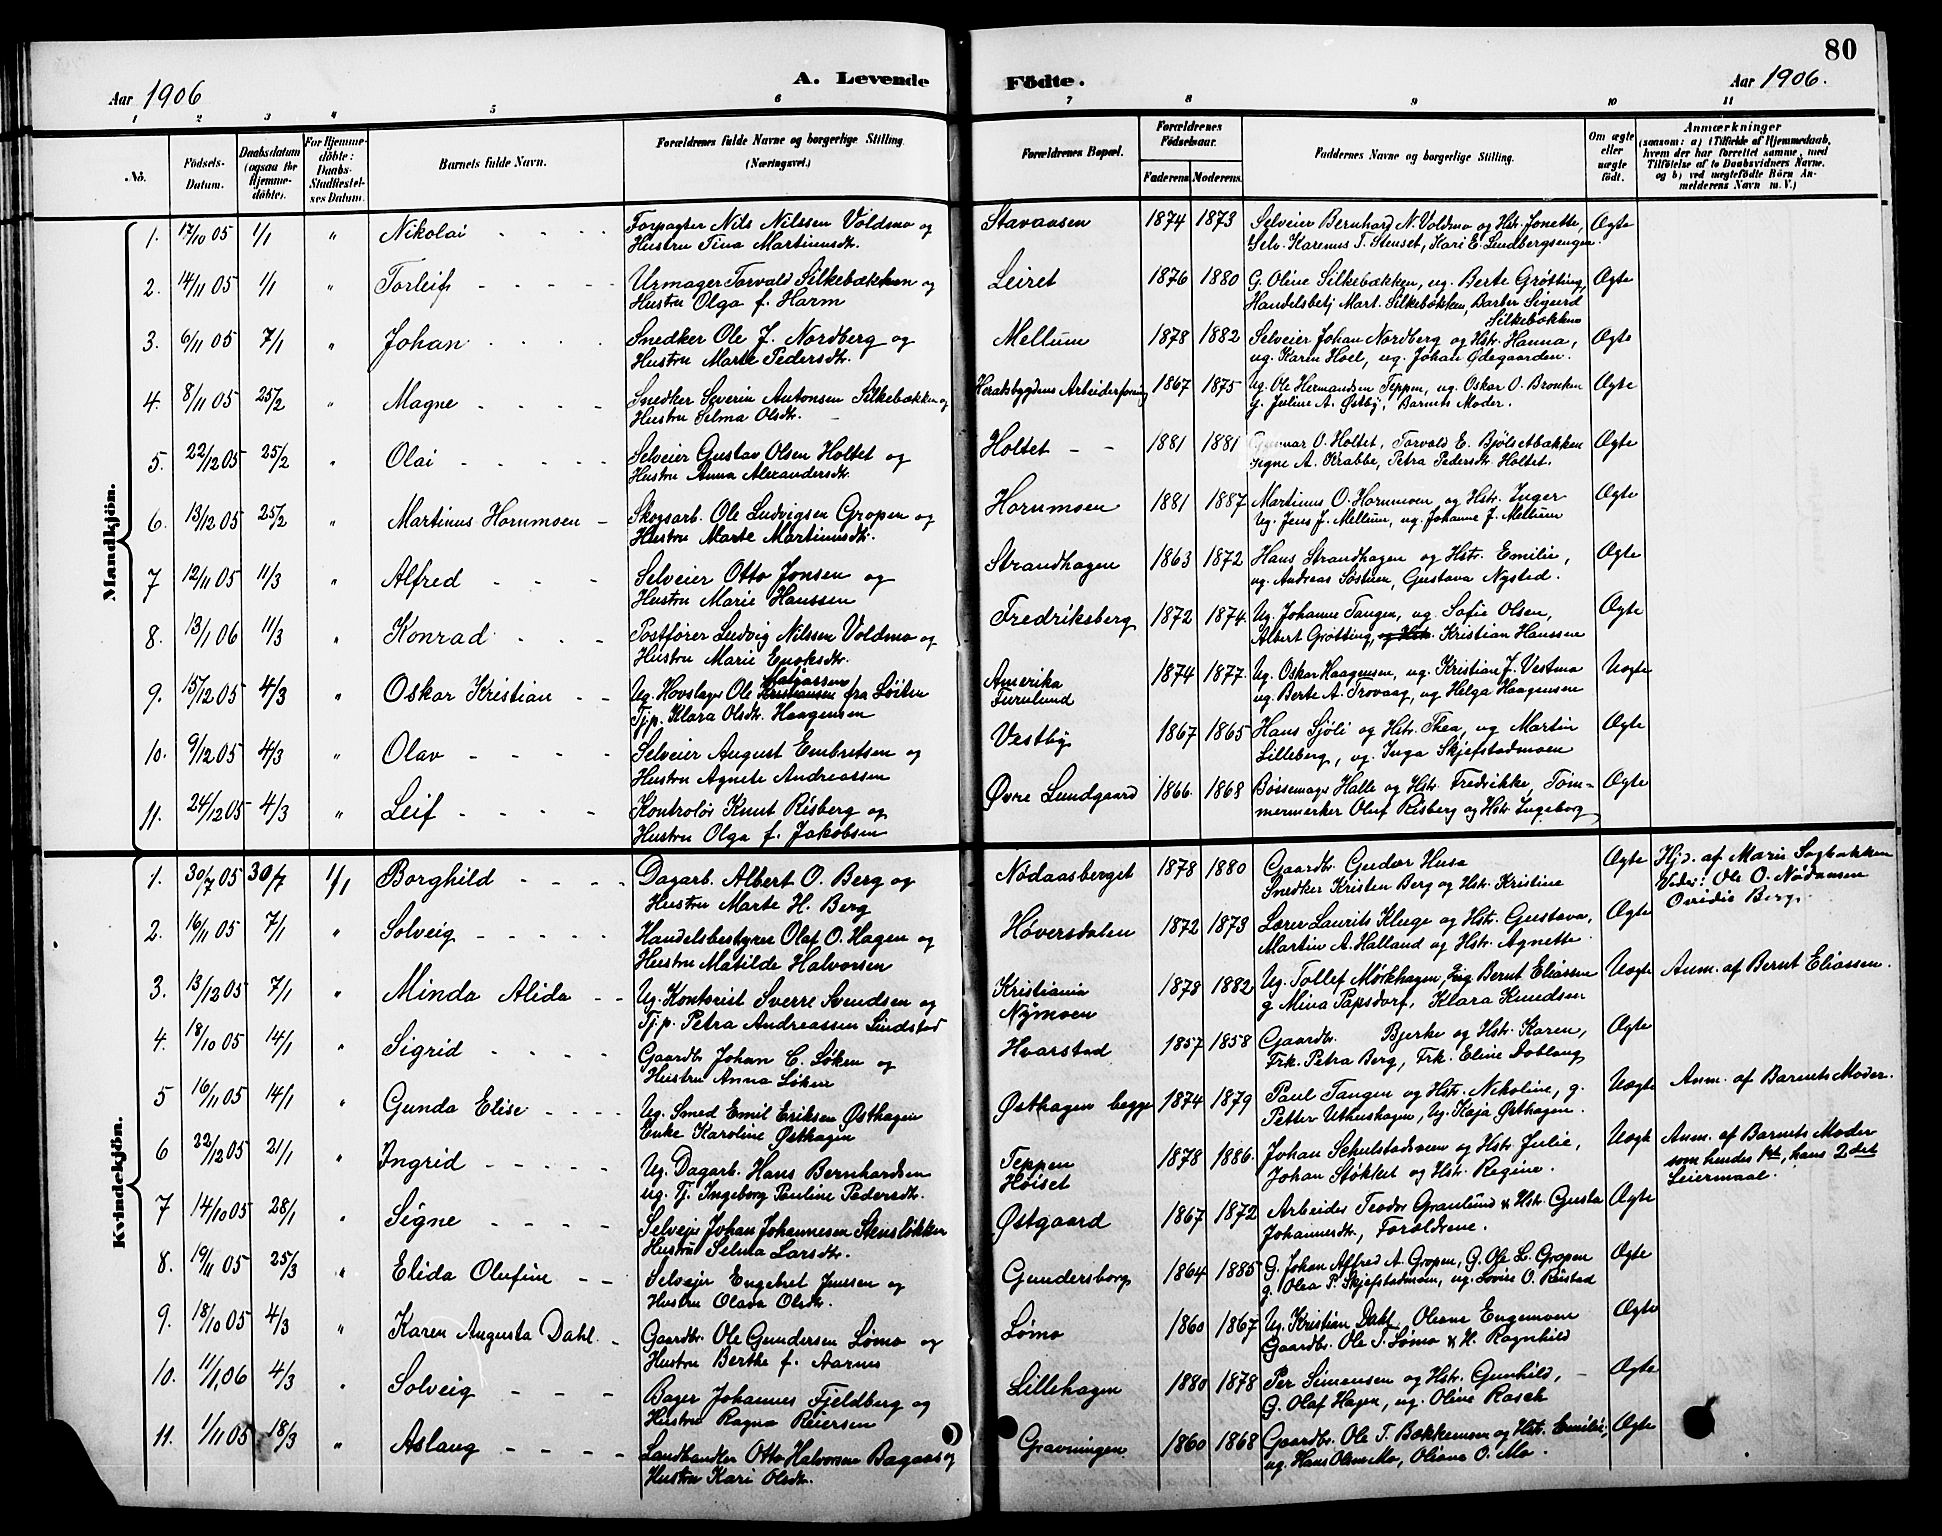 80
Aar 1906
A. Levende
Födte.
Aar 1906.
1 2 3 4 5 6 7 8 9 10 11
No.
Födsels-Datum.
Daabsdatum (ogsaa for Hjemmedöbte).
For Hjemmedöbte: Daabs-Stadfæstelses Datum.
Barnets fulde Navn.
Forældrenes fulde Navne og borgerlige Stilling. (Næringsvei.)
Forældrenes Bopæl.
Forældrenes Födselsaar.
Faderens Moderens.
Faddernes Navne og borgerlige Stilling.
Om ægte eller uægte födt.
Anmærkninger
(saasom: a) i Tilfælde af Hjemmedaab, hvem der har forrettet samme, med Tilföielse af to Daabsvidners Navne, og b) ved uægtefödte Börn Anmelderens Navn m. V.)
Mandkjön.
1. 17/10 05 1/1 " Nikolai - - - - Forpagter Nils Nilssen Voldmo og Stavaasen 1874 1873 Selveier Bernhard N. Voldmo og Hst. Jonette, Ægte
Hustru Tina Martinusdt. Selv. Karenus T. Stenset, Kari E. Lundbergsengen.
2. 14/11 05 1/1 " Torleif - - - - - Urmager Torvald Silkebækken og Leiret 1876 1880 G. Oline Silkebækken, ug. Berte Grøtting, Ægte
Hustru Olga f. Harm Handelsbetj. Mart. Silkebækken, Barber Sigurd
Silkebækken
3. 6/11 05 7/1 " Johan - - - - Snedker Ole J. Nordberg og Mellum 1878 1882 Selveier Johan Nordberg og Hst. Hanna, Ægte
Hustru Marte Pedersdt. ug. Karen Hoel, ug. Johan Ødegaarden.
4. 8/11 05 25/2 " Magne - - - - Snedker Severin Antonsen Silkebækken og Heradsbygdens Arbeiderforening 1867 1875 Ug. Ole Hermandsen Teppen, ug. Oskar O. Bronken Ægte
Hustru Selma Olsdt. - g. Juline A. Østby, Barnets Moder.
5. 22/12 05 25/2 " Olai - - - - - Selveier Gustav Olsen Holtet og Holtet - - 1881 1881 Gunnar O. Holtet, Torvald E. Bjølsetbakken Ægte
Hustru Anna Alexandersdt. Signe A. Krabbe, Petra Pedersdt. Holtet.
6. 13/12 05 25/2 " Martinus Hornmoen - Skogsarb. Ole Ludvigsen Gropen og Hornmoen 1881 1887 Martinus O. Hornmoen og Hst. Inger Ægte
Hustru Marte Martinusdt. Ug. Jens J. Mellum, ug. Johanne J. Mellum
7 12/11 05 11/3 " Alfred - - - Selveier Otto Jonsen og Strandhagen 1863 1872 Hans Strandhagen og Hst. Emilie, Ægte
Hustru Marie Hanssen ug. Andreas Søstuen, Gustava Nysted.
8. 13/1 06 11/3 " Konrad - - - Postfører Ludvig Nilssen Voldmo og Fredriksberg 1872 1874. Ug. Johanne Tangen, ug. Sofie Olsen, Ægte
Hustru Marie Enoksdt. Albert Grøtting, og Hst. Kristian Hanssen
9. 15/12 05 4/3 " Oskar Kristian - - Ug. Hovslager Ole Kristiansen fra Løiten Amerika 1874 1877. Ug. Oskar Haagensen, ug. Kristian J. Vestmo Uægte
Tjp. Klara Olsdt. Haagensen Furulund ug. Berte A. Trovaag, ug Helga Haagensen
10. 9/12 05 4/3 " Olav - - - - Selveier August Embretsen og Vestby 1867 1865 Hans Sjøli og Hst. Thea, ug Martin Ægte
Hustru Agnete Andreassen Lilleberg, ug Inga Skjefstadmoen
11. 24/12 05 4/3 " Leif - - - - Kontrolør Knut Risberg og Øvre Lundgaard 1866. 1868 Bøssemager Halle og Hst. Fredrikke, Töm- Ægte
Hustru Olga f. Jakobsen mermerker Oluf Risberg og Hst. Ingeborg
Kvindekjön.
1. 30/7 05 30/7 1/1 Borghild - - - - Dagarb. Albert O. Berg og Nödaasberget 1878 1880 Gaardbr. Gudar Husa Ægte Hjd. af Marie Sagbakken
Hustru Marte H. Berg Snedker Kristen Berg og Hst. Kristine Vidn: Ole O. Nödaasen
Ovidie Berg.
2. 16/11 05 7/1 " Solveig - - - - - Handelsbestyrer Olaf O. Hagen og Høversdalen 1872 1873 Lærer Laurits Kluge og Hst. Gustava, Ægte
Hustru Matilde Halvorsen Martin A. Halland og Hst. Agnette.
3. 13/12 05 7/1 " Minda Alida - - Ug. Kontorist Sverre Svendsen og Kristiania 1878 1882 Ug. Tollef Mørkhagen, Ing. Bernt Eliassen Uægte Anm. af Bernt Eliassen.
Tjp. Petra Andreassen Lindstad Nymoen g Mina Papsdorf, Klara Knudsen
4. 18/10 05 14/1 " Sigrid - - - - Gaardbr. Johan C. Løken og Hvarstad 1857 1858 Gaardbr. Bjerke og Hst. Karen, Ægte
Hustru Anna Løken Frk. Petra Berg, Frk. Eline Doblaug
5 16/11 05 14/1 " Gunda Elise - - - - Ug. Smed Emil Eriksen Østhagen Østhagen begge 1874 1879 Paul Tangen og Hst. Nikoline, g. Uægte Anm. af Barnets Moder.
Enke Karoline Østhagen Petter Uthushagen, Ug. Kaja Østhagen.
6 22/12 05 21/1 " Ingrid - - - - - Ug. Dagarb. Hans Bernhardsen Teppen 1878 1886. Johan Schulstadsveen og Hst. Julie, Uægte Anm. af Barnets Moder
ug. Tj. Ingeborg Pauline Pedersdt. Høiset Johan Støkket og Hst. Regine. som hendes 1ste, hans 2det
Leiermaal.
7 14/10 05 28/1 " Signe - - - - Selvejer Johan Johannesen Stensløkken Østgaard 1867 1872 Arbeider Teodor Granlund & Hst. Gusta Ægte
Hustru Selma Larsdt. Johannesdt, Forældrene.
8. 19/11 05 25/3 " Elida Olufine - - Selvejer Engebret Jenssen og Gundersborg 1864 1885 G. Johan Alfred A. Gropen, G. Ole L. Gropen Ægte
Hustru Olava Olsdt. g. Olea P. Skjefstadmoen, ug. Lovise O. Rustad
9. 18/10 05 4/3 " Karen Augusta Dahl. - Gaardbr. Ole Gundersen Lømo og Lømo 1860 1867 Ug. Kristian Dahl, Oleane Engemoen Ægte
Hustru Berthe f. Aarnes Gaardbr. Ole T. Lømo & H. Ragnhild
10. 11/1 06 4/3 " Solveig - - - Bager Johannes Fjeldberg og Lillehagen 1880 1878 Per Simensen og Hst. Gunhild, - Ægte
Hustru Ragna Reiersen G. Olaf Hagen, ug. Oline Rasch
11. 1/11 05 18/3 " Aslaug - - - - Landhandler Otto Halvorsen Bagaas og Gravningen 1860 1868 Gaardbr. Ole T. Bækkemoen og Hst. Emilie, Ægte
Hustru Kari Olsdt. ug. Hans Olsen Mo, Oliane O. Mo.